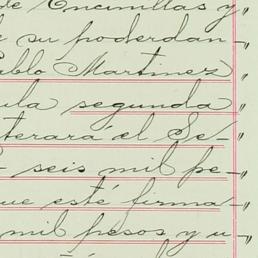 de Encinillas y "
su poderdan- "
ablo Martinez "
ula segunda "
terará el Se- "
- seis mil pe- "
ue esté firma- "
mil pesos y u- "